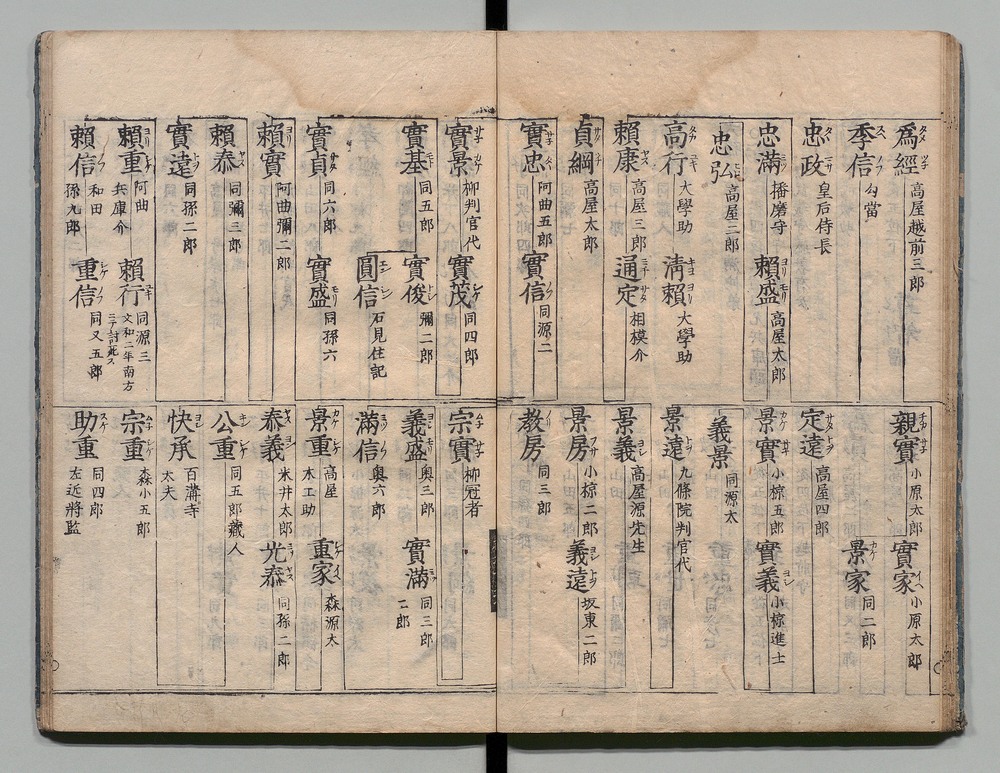 為經 高屋越前三郎
季信 勾當
忠政 皇后侍長
忠滿 播磨守 賴盛 高屋太郎
忠弘 高屋三郎
高行 大學助 淸賴 大學助
賴康 高屋三郎 通定 相模介
貞綱 高屋太郎
實忠 阿曲五郎 實信 同源二
親實 小原太郎 實家 小原太郎
景家 同二郎
定遠 高屋四郎
景實 小椋五郎 實義 小椋進士
義景 同源太
景遠 九條院判官代
景義 高屋源先生
景房 小椋二郎 義遠 坂東二郎
教房 同三郎
實景 柳判官代 實茂 同四郎
實基 同五郎 實俊 彌二郎
圓信 石見住記
實貞 同六郎 實盛 同孫六
賴實 阿曲彌二郎
賴泰 同彌三郎
實遠 同孫二郎
賴重 阿曲兵庫介 賴行 同源三 文和二年南方ニテ討死ス
賴信 和田孫九郎 重信 同又五郎
宗實 柳冠者
義盛 奥三郎 實滿 同三郎二郎
滿信 奥六郎
景重 高屋木工助 重家 森源太
泰義 米井太郎 光泰 同孫二郎
公重 同五郎藏人
快承 百濟寺太夫
宗重 森小五郎
助重 同四郎左近將監